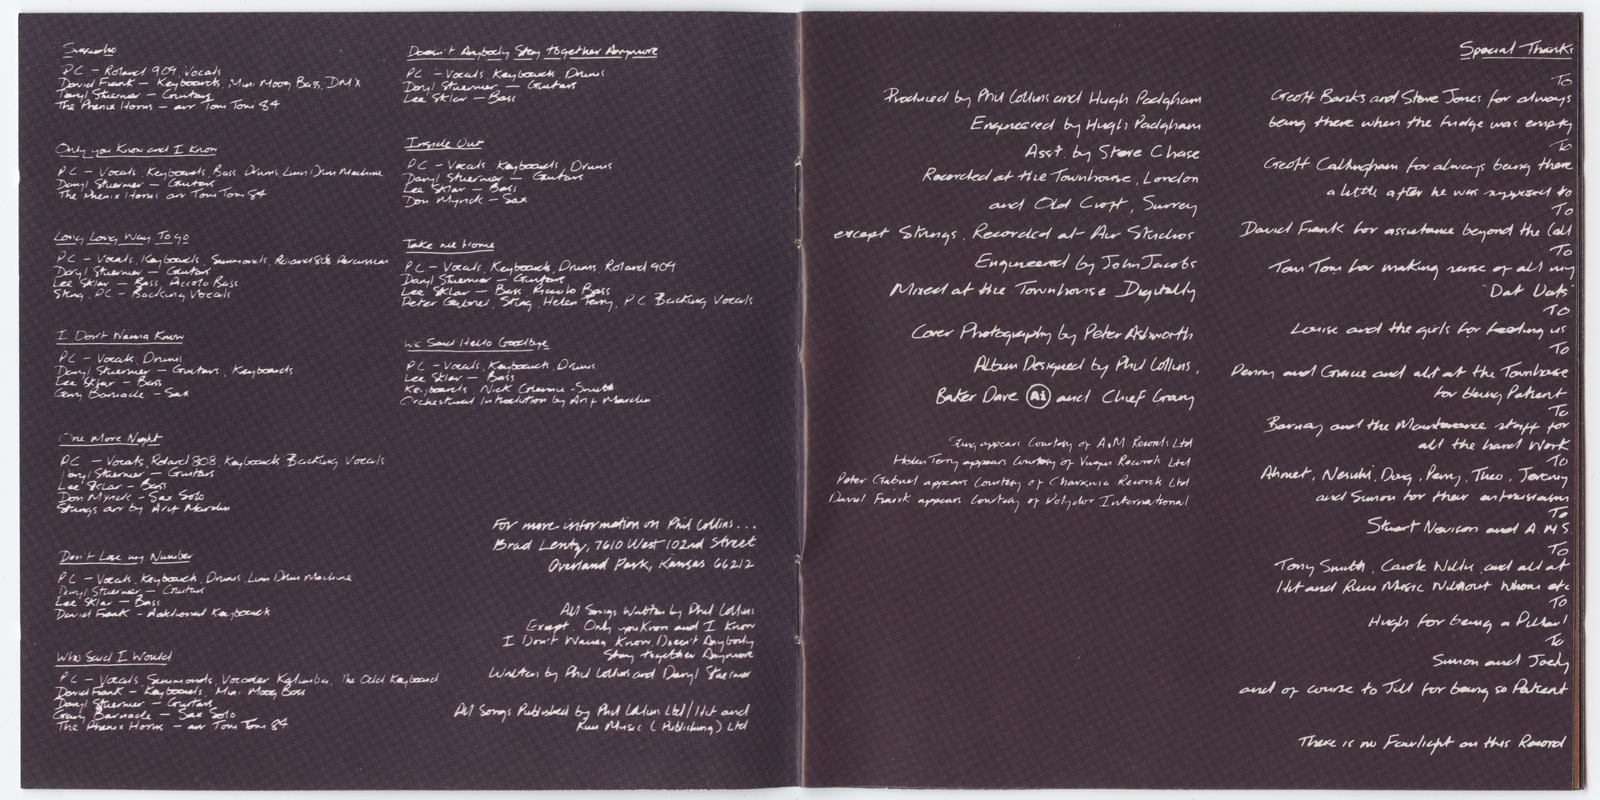 Sussudio
PC - Roland 909, Vocals
David Frank - Keyboards, Mini Moog Bass, DMX
Daryl Stuermer - Guitars
The Phenix Horns - arr Tom Tom 84
Only you Know and I Know
PC - Vocals, Keyboards, Bass Drums, Linn Drum Machine
Daryl Stuermer - Guitars
The Phenix Horns arr Tom Tom 84
Long Long Way To go
PC - Vocals, Keyboards, Simmonds, Roland 808 Percussion
Daryl Stuermer - Guitars
Lee Sklar - Bass, Piccolo Bass
Sting, PC - Backing Vocals
I Don't Wanna Know
PC - Vocals, Drums
Daryl Stuermer - Guitars, Keyboards
Lee Sklar - Bass
Gary Barnacle - Sax
One More Night
PC - Vocals, Roland 808, Keyboards Backing Vocals
Daryl Stuermer - Guitars
Lee Sklar - Bass
Don Myrick - Sax Solo
Strings arr by Arif Mardin
Don't Lose my Number
PC - Vocals, Keyboards, Drums, Linn Drum Machine
Daryl Stuermer - Guitars
Lee Sklar - Bass
David Frank - Additional Keyboards
Who Said I Would
PC - Vocals, Simmonds, Vocoder Kalimba, The Odd Keyboard
David Frank - Keyboards, Mini Moog Bass
Daryl Stuermer - Guitars
Gary Barnacle - Sax Solo
The Phenix Horns - arr Tom Tom 84
Doesn't Anybody Stay together Anymore
PC - Vocals Keyboards Drums
Daryl Stuermer - Guitars
Lee Sklar - Bass
Inside Out
PC - Vocals Keyboards, Drums
Daryl Stuermer - Guitars
Lee Sklar - Bass
Don Myrick - Sax
Take me Home
PC - Vocals, Keyboards, Drums, Roland 909
Daryl Stuermer - Guitars
Lee Sklar - Bass Piccolo Bass
Peter Gabriel, Sting, Helen Terry, PC Backing Vocals
We Said Hello Goodbye
PC - Vocals, Keyboards, Drums
Lee Sklar - Bass
Keyboards, Nick Glennie-Smith
Orchestural Introdution by Arif Mardin
For more information on Phil Collins...
Brad Lentz, 7610 West 102nd Street
Overland Park, Kansas 66212
All Songs Written by Phil Collins
Except. Only you Know and I Know
I Don't Wanna Know, Doesn't Anybody
Stay together Anymore
Written by Phil Collins and Daryl Stuermer
All Songs Published by Phil Collins Ltd/Hit and
Run Music (Publishing) Ltd
Produced by Phil Collins and Hugh Padgham
Engineered by Hugh Padgham
Asst. by Steve Chase
Recorded at the Townhouse, London
and Old Croft, Surrey
except Strings, Recorded at Air Studios
Engineered by John Jacobs
Mixed at the Townhouse Digitally
Cover Photography by Peter Ashworth
Album Designed by Phil Collins,
Baker Dave Ai and Chief Grany
Sting appears Courtesy of A.M Records Ltd
Helen Terry appears Courtesy of Virgin Records Ltd
Peter Gabriel appears Courtesy of Charisma Records Ltd
David Frank appears Courtesy of Polydor International
Special Thanks
To
Geoff Banks and Steve Jones for always
being there when the fridge was empty
To
Geoff Callingham for always being there
a little after he was supposed to
To
David Frank for assistance beyond the Call
To
Tom Tom for making sense of all my
"Dat Dats"
To
Louise and the girls for feeding us
To
Penny and Gracie and all at the Townhouse
for being Patient
To
Barney and the Maintenance staff for
all the hard Work
To
Ahmet, Nesuhi, Doug, Perry, Theo, Jeremy
and Simon for their enthusiasm
To
Stuart Nevison and A.M.S
To
Tony Smith, Carole Willis, and all at
Hit and Run Music Without Whom etc
To
Hugh for being a Pillar!
To
Simon and Joely
and of course to Jill for being so Patient
There is no Fairlight on this Record